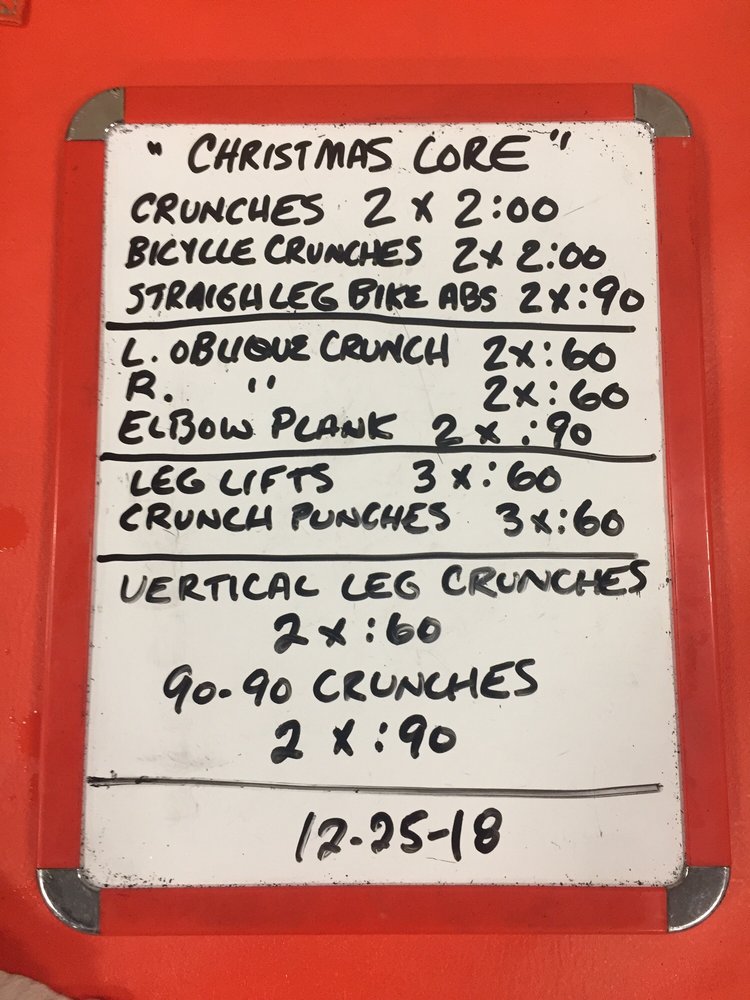 " CHRISTMAS CORE "
CRUNCHES 2 X 2:00
BICYCLE CRUNCHES 2X 2:00
STRAIGH LEG BIKE ABS 2X :90
L. OBLIQUE CRUNCH 2X :60
R. " 2X :60
ELBOW PLANK 2 X :90
LEG LIFTS 3 X :60
CRUNCH PUNCHES 3X :60
VERTICAL LEG CRUNCHES
2 X :60
90-90 CRUNCHES
2 X :90
12-25-18